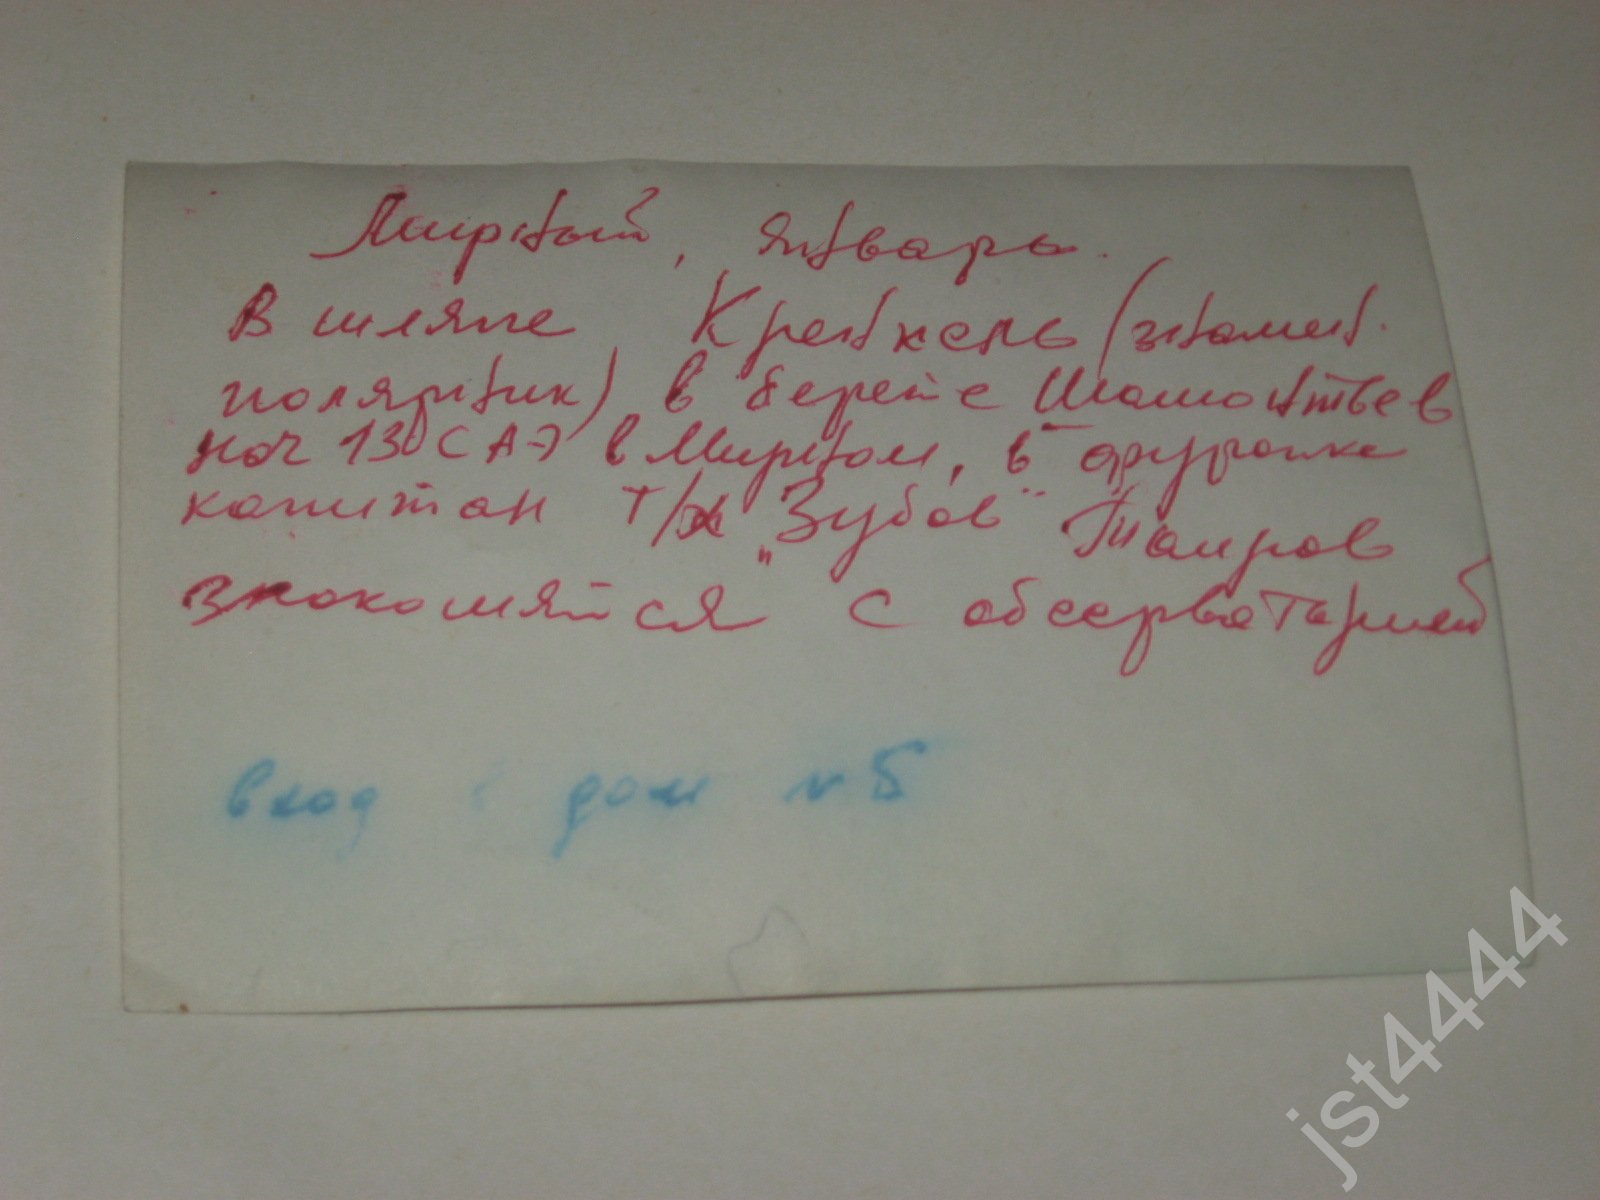 Мирный, январь.
В шляпе Кренкель (знамен.
полярник) в берете Шамонтьев
нач 13й САЭ в Мирном, в фуражке
капитан т/х "Зубов" Таиров
знакомятся с обсерваторией
вход в дом №5
jst4444